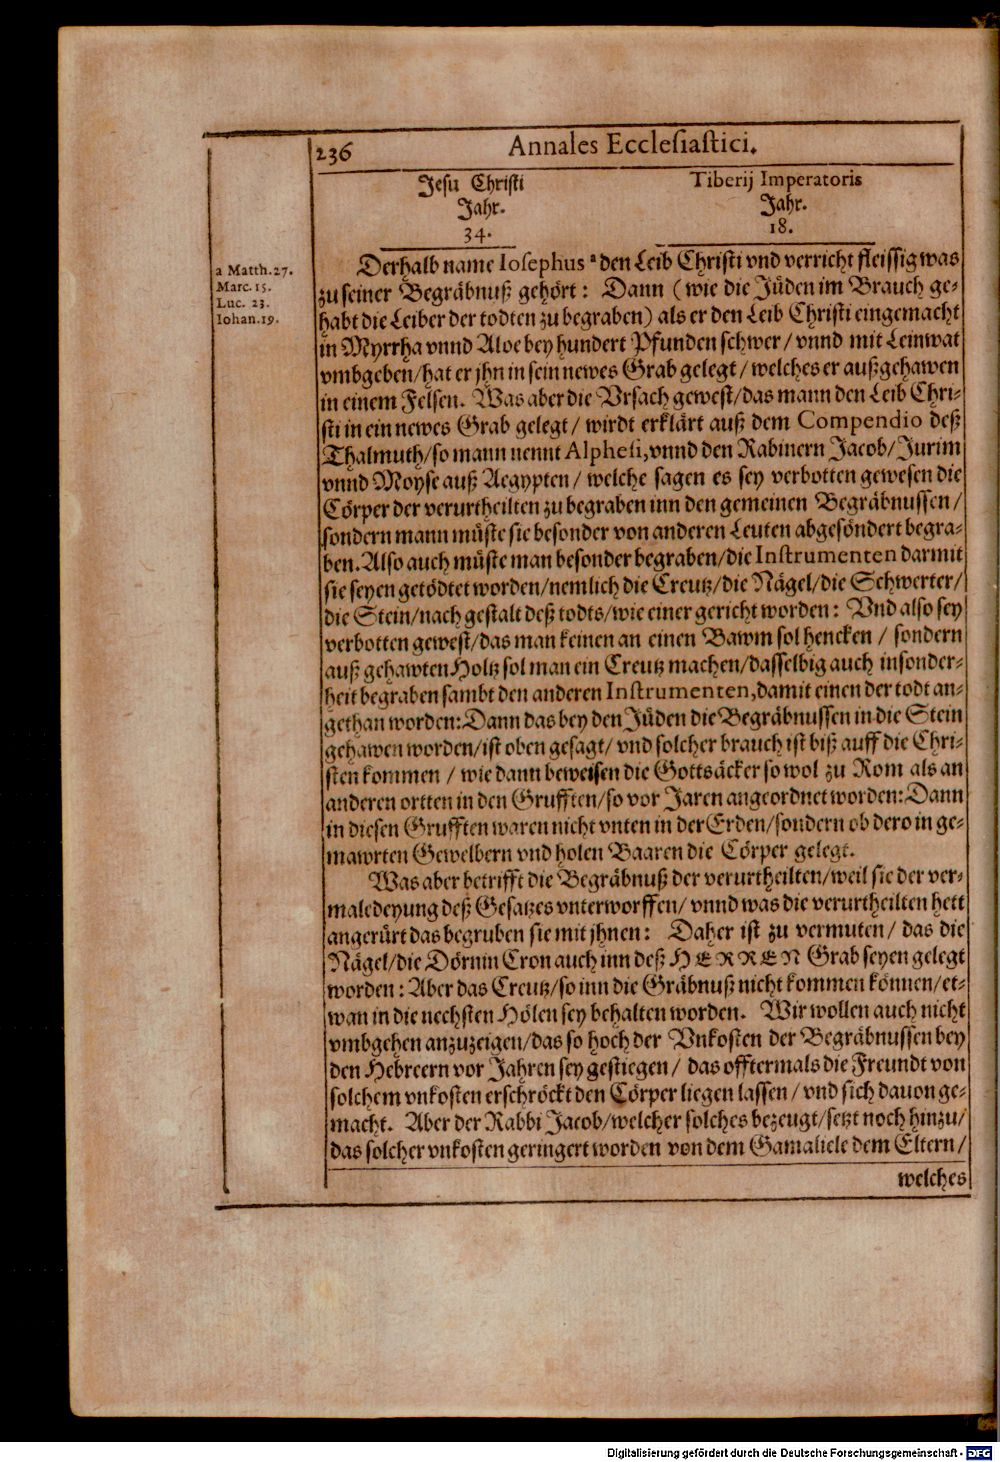 236 Annales Ecclesiastici.
Jesu Christi
Jahr.
34.
Tiberij Imperatoris
Jahr.
18.
a Matth. 27.
Marc. 15.
Luc. 23.
Iohan. 19.
Derhalb name Iosephus a den Leib Christi vnd verricht fleissig was
zu seiner Begräbnuß gehört: Dann (wie die Jüden im Brauch ge-
habt die Leiber der todten zu begraben) als er den Leib Christi eingemacht
in Myrrha vnnd Aloe bey hundert Pfunden schwer/ vnnd mit Leinwat
vmbgeben/ hat er jhn in sein newes Grab gelegt/ welches er außgehawen
in einem Felsen. Was aber die Vrsach gewest/ das mann den Leib Chri-
sti in ein newes Grab gelegt/ wirdt erklärt auß dem Compendio deß
Thalmuth/ so mann nennt Alphesi, vnnd den Rabinern Jacob/ Jurim
vnnd Moyse auß Aegypten/ welche sagen es sey verbotten gewesen die
Cörper der verurtheilten zu begraben inn den gemeinen Begräbnussen/
sondern mann müste sie besonder von anderen Leuten abgesöndert begra-
ben. Also auch müste man besonder begraben/ die Instrumenten darmit
sie seyen getödtet worden/ nemlich die Creutz/ die Nägel/ die Schwerter/
die Stein/ nach gestalt deß todts/ wie einer gericht worden: Vnd also sey
verbotten gewest/ das man keinen an einen Bawm sol hencken/ sondern
auß gehawten Holtz sol man ein Creutz machen/ dasselbig auch insonder-
heit begraben sambt den anderen Instrumenten, damit einen der todt an-
gethan worden: Dann das bey den Jüden die Begräbnussen in die Stein
gehawen worden/ ist oben gesagt/ vnd solcher brauch ist biß auff die Chri-
sten kommen/ wie dann beweisen die Gottsäcker so wol zu Rom als an
anderen ortten in den Grufften/ so vor Jaren angeordnet worden: Dann
in diesen Grufften waren nicht vnten in der Erden/ sondern ob dero in ge-
mawrten Gewelbern vnd holen Baaren die Cörper gelegt.
Was aber betrifft die Begräbnuß der verurtheilten/ weil sie der ver-
maledeyung deß Gesatzes vnterworffen/ vnnd was die verurtheilten hett
angerürt das begruben sie mit jhnen: Daher ist zu vermuten/ das die
Nägel/ die Dörnin Cron auch inn deß HERREN Grab seyen gelegt
worden: Aber das Creutz/ so inn die Gräbnuß nicht kommen können/ et-
wan in die nechsten Hölen sey behalten worden. Wir wollen auch nicht
vmbgehen anzuzeigen/ das so hoch der Vnkosten der Begräbnussen bey
den Hebreern vor Jahren sey gestiegen/ das offtermals die Freundt von
solchem vnkosten erschröckt den Cörper liegen lassen/ vnd sich dauon ge-
macht. Aber der Rabbi Jacob/ welcher solches bezeugt/ setzt noch hinzu/
das solcher vnkosten geringert worden von dem Gamaliele dem Eltern/
welches
Digitalisierung gefördert durch die Deutsche Forschungsgemeinschaft - DFG